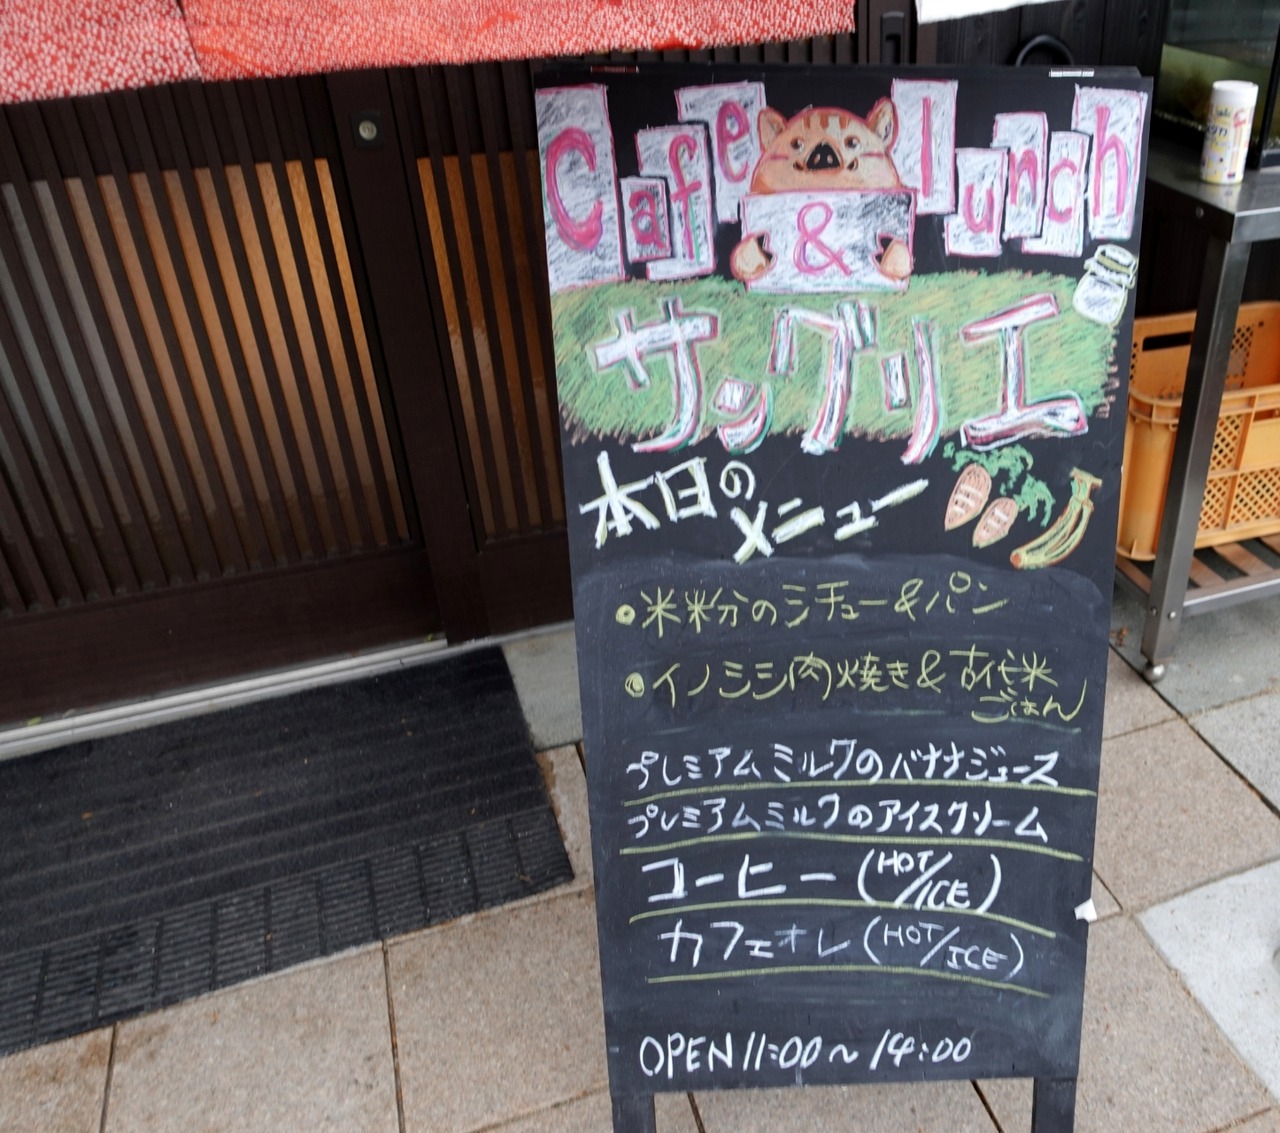 Cafe & lunch
サングリエ
本日の
メニュー
●米粉のシチュー&パン
●イノシシ肉焼き&古代米
ごはん
プレミアムミルクのバナナジュース
プレミアムミルクのアイスクリーム
コーヒー(HOT/ICE)
カフェオレ(HOT/ICE)
OPEN 11:00~14:00